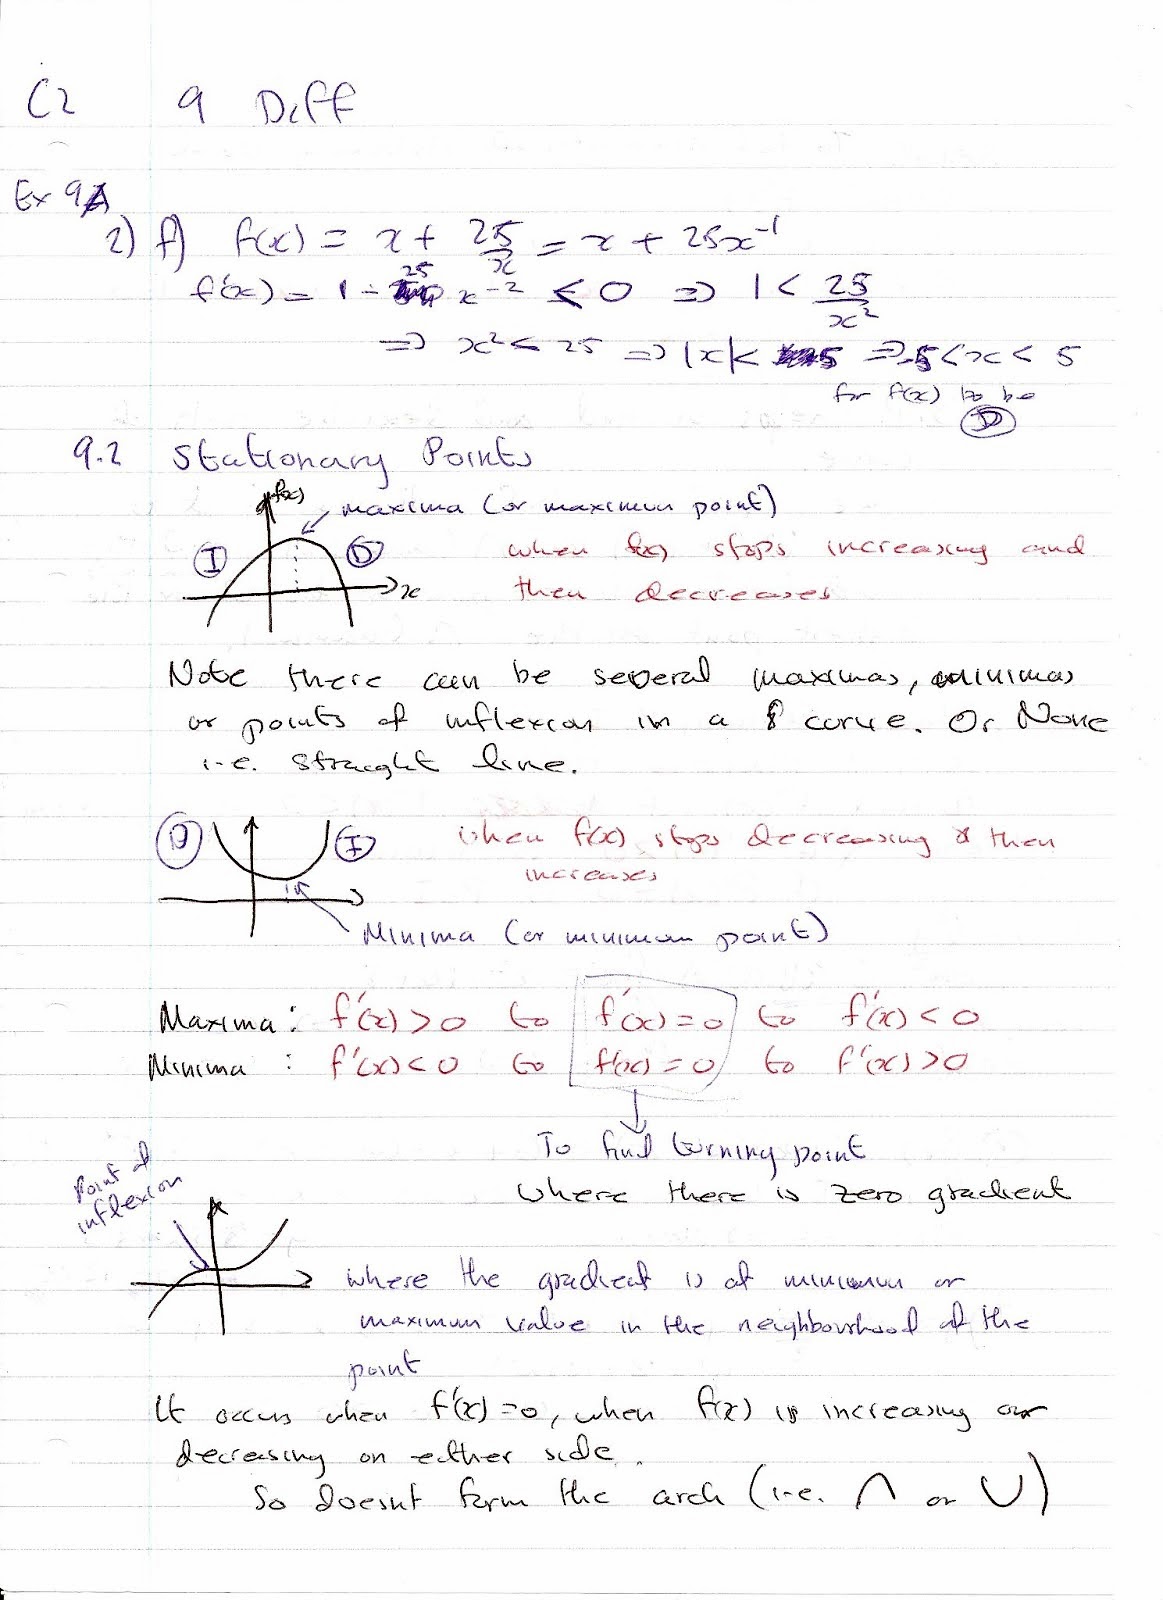 C2 9 Diff
Ex 9A
2) f) f(x) = x + 25/x = x + 25x⁻¹
f'(x) = 1 - 25 x⁻² < 0 ⇒ 1 < 25/x²
⇒ x² < 25 ⇒ |x| < 5 ⇒ -5 < x < 5
for f(x) to be
D
9.2 Stationary Points
f(x)
maxima (or maximum point)
I D x
when f(x) stops increasing and
then decreases
Note there can be several maximas, minimas
or points of inflexion in a curve. Or None
i.e. straight line.
D I
when f(x) stops decreasing & then
increases
Minima (or minimum point)
Maxima : f'(x) > 0 to f'(x) = 0 to f'(x) < 0
Minima : f'(x) < 0 to f'(x) = 0 to f'(x) > 0
To find turning point
where there is zero gradient
Point of
inflexion
where the gradient is at minimum or
maximum value in the neighbourhood of the
point
It occurs when f'(x) = 0, when f(x) is increasing or
decreasing on either side.
So doesnt form the arch (i.e. ∩ or ∪)